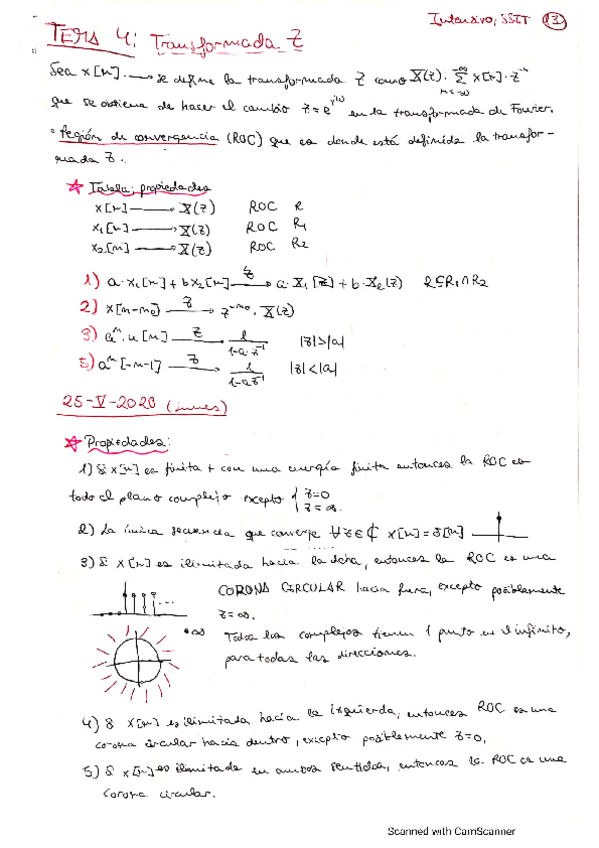 Intensivo; SSTT 13
TEMA 4: Transformada Z
Sea x[n]. → se define la transformada Z como X(z). Σ x[n]·z⁻ⁿ
que se obtiene de hacer el cambio z = e^jω en la transformada de Fourier.
° Región de convergencia (ROC) que es donde está definida la transfor-
mada Z.
☆ Tabla; propiedades
x[n] → X(z) ROC R
x₁[n] → X(z) ROC R₁
x₂[n] → X(z) ROC R₂
1) a·x₁[n] + bx₂[n] →ᶻ a·X₁[z] + b·X₂(z) R⊆R₁∩R₂
2) x[n-n₀] →ᶻ z^-n₀·X(z)
3) aⁿ·u[n] →ᶻ 1/(1-a·z⁻¹) |z|>|a|
5) aⁿ[-n-1] →ᶻ 1/(1-az⁻¹) |z|<|a|
25-V-2020 (lunes)
☆ Propiedades:
1) Si x[n] es finita + con una energía finita entonces la ROC es
todo el plano complejo excepto { z=0 z=∞.
2) La única secuencia que converge ∀z∈ℂ x[n]=δ[n]
3) Si x[n] es ilimitada hacia la dcha, entonces la ROC es una
CORONA CIRCULAR hacia fuera, excepto posiblemente
z=∞.
•∞ Todos los complejos tienen 1 punto en el infinito,
para todas las direcciones.
4) Si x[n] es ilimitada hacia la izquierda, entonces ROC es una
corona circular hacia dentro, excepto posiblemente z=0,
5) Si x[n] es ilimitada en ambos sentidos, entonces la ROC es una
corona circular.
Scanned with CamScanner